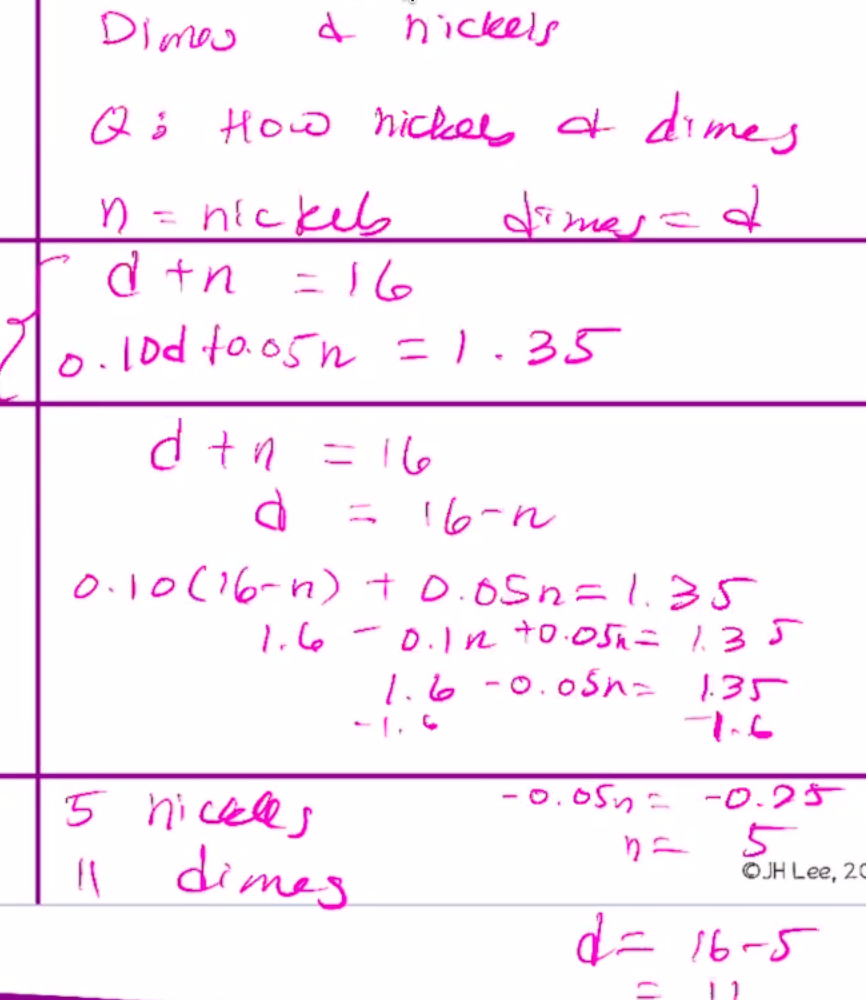 Dimes & nickels
Q: How nickels & dimes
n = nickels dimes = d
d + n = 16
0.10d + 0.05n = 1.35
d + n = 16
d = 16 - n
0.10(16-n) + 0.05n = 1.35
1.6 - 0.1n + 0.05n = 1.35
1.6 - 0.05n = 1.35
-1.6 -1.6
-0.05n = -0.25
5 nickels
n = 5
11 dimes
©JH Lee, 20
d = 16-5
= 11